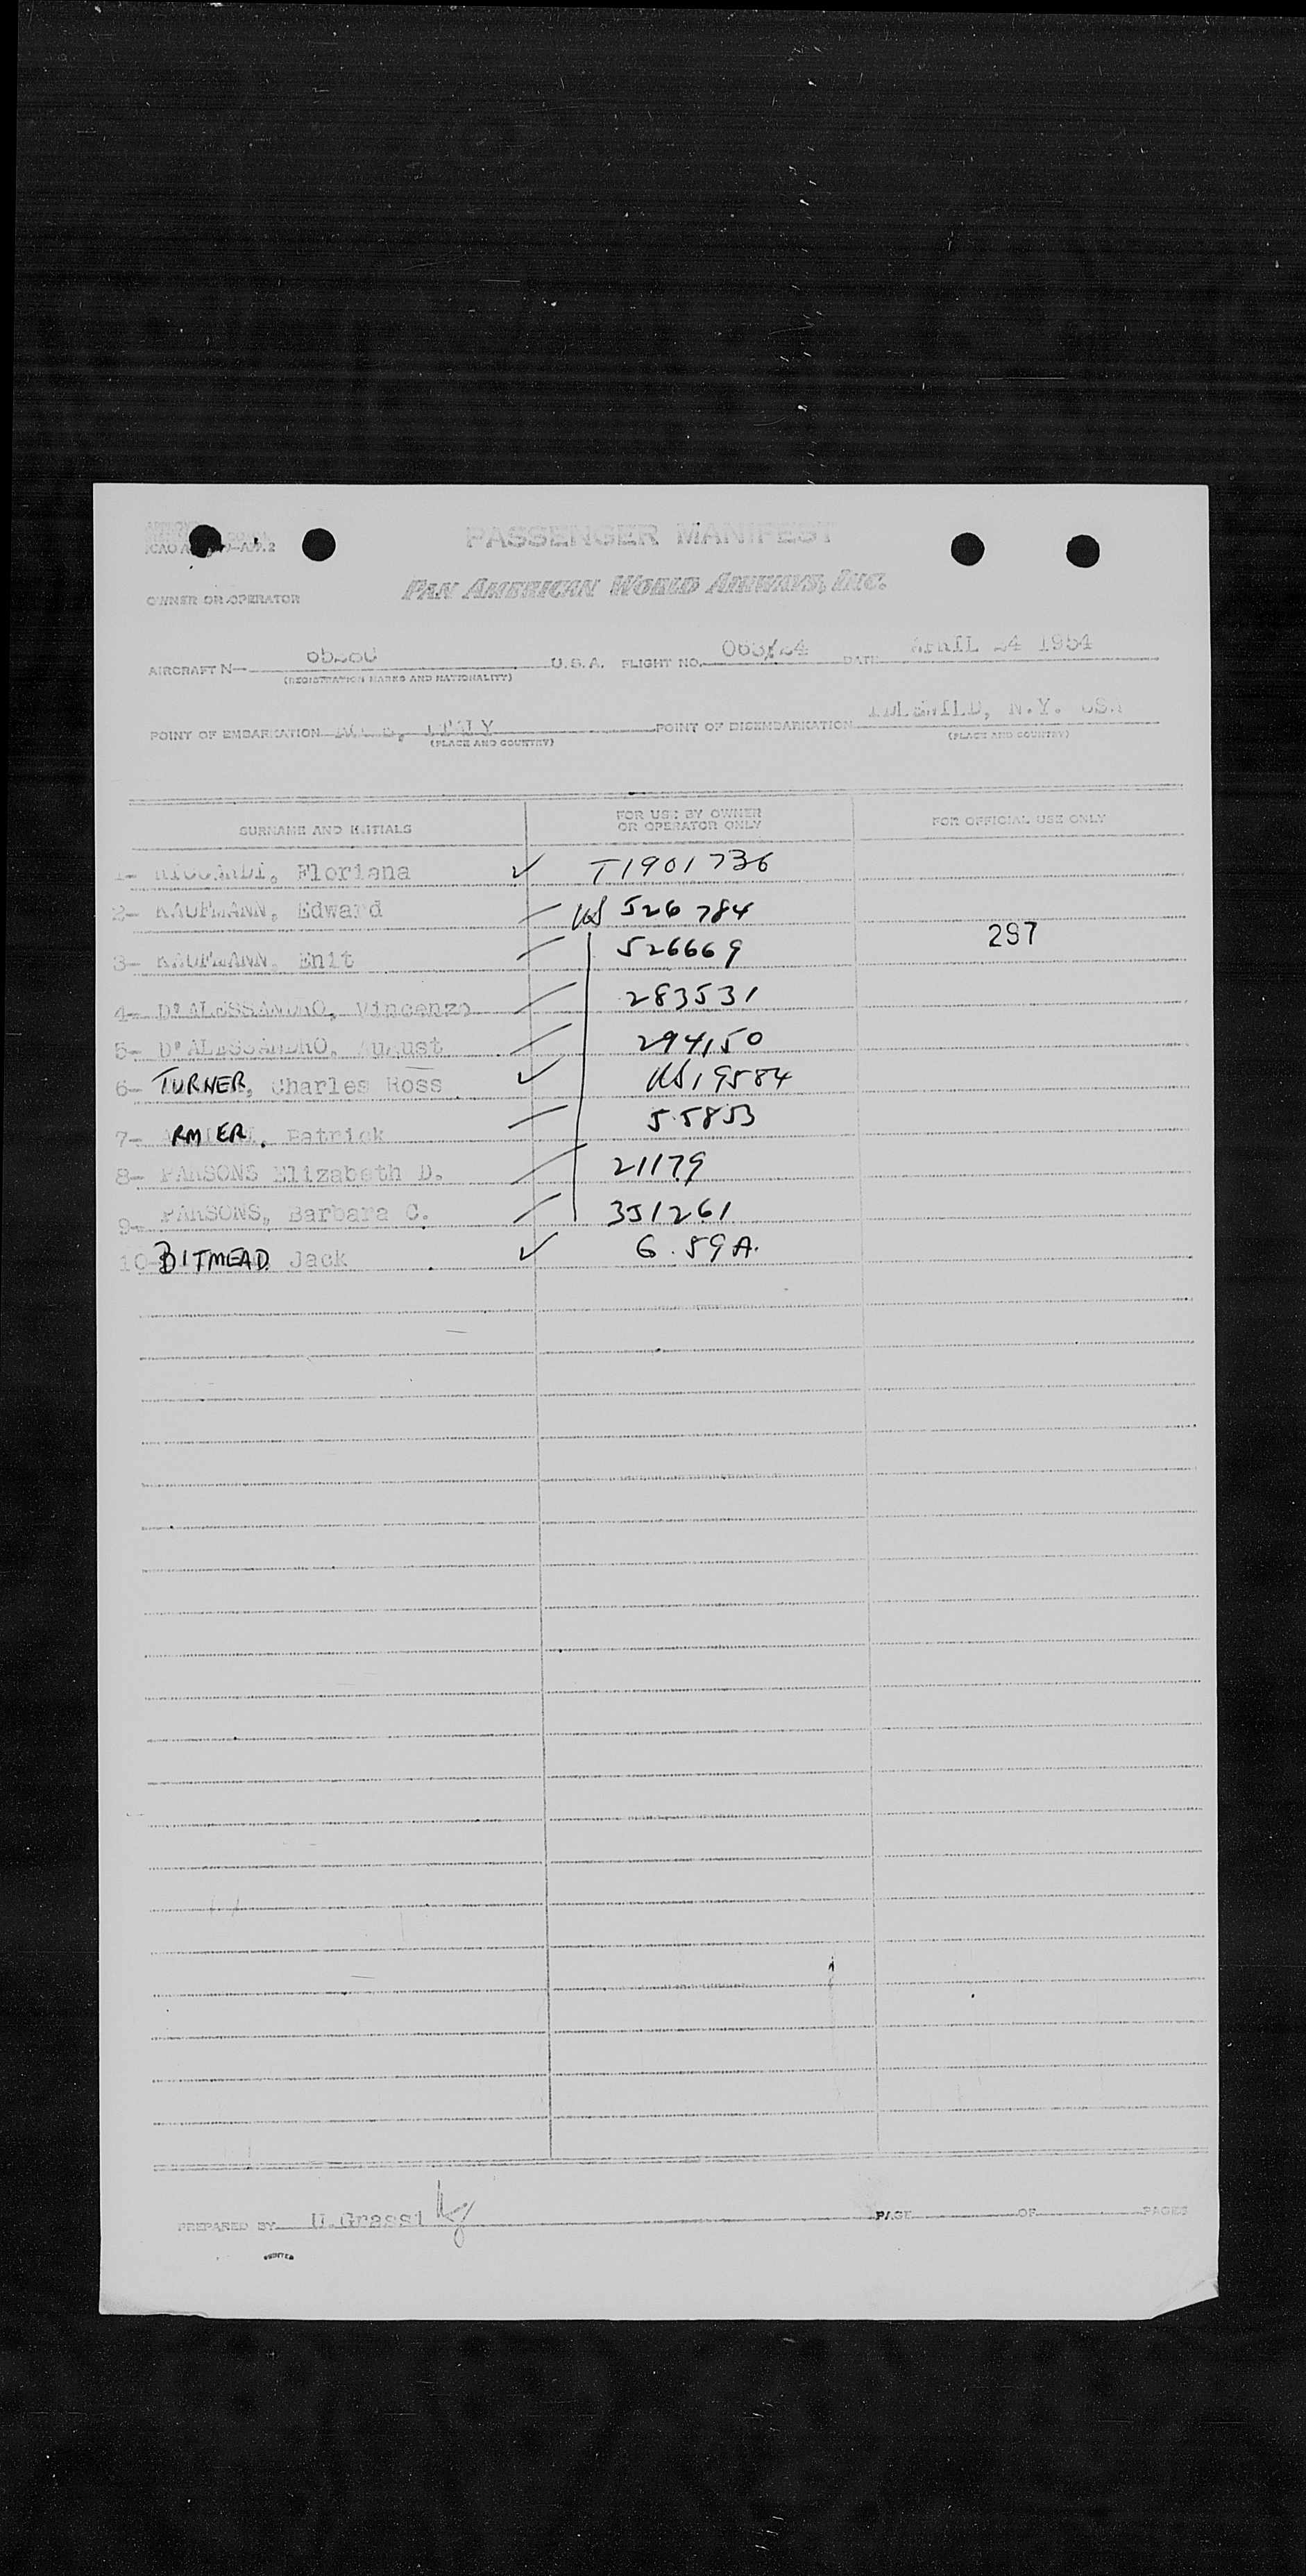 PASSENGER MANIFEST
ICAO APP. 2
PAN AMERICAN WORLD AIRWAYS, INC.
OWNER OR OPERATOR
AIRCRAFT N— U.S.A. FLIGHT NO. DATE APRIL 24 1954
(REGISTRATION MARKS AND NATIONALITY)
POINT OF EMBARKATION ITALY POINT OF DISEMBARKATION IDLEWILD, N.Y. USA
(PLACE AND COUNTRY) (PLACE AND COUNTRY)
SURNAME AND INITIALS FOR USE BY OWNER OR OPERATOR ONLY FOR OFFICIAL USE ONLY
1- RICCARDI, Floriana ✓ T1901736
2- KAUFMANN, Edward 526784
3- KAUFMANN, Enit 526669 297
4- D'ALESSANDRO, Vincenzo 283531
5- D'ALESSANDRO, August 294150
6- TURNER, Charles Ross ✓ 19584
7- RMER, Patrick 55853
8- PARSONS Elizabeth D. 21179
9- PARSONS, Barbara C. 351261
10- BITMEAD Jack ✓ G.59A.
PREPARED BY U.Grassi PAGE OF PAGES